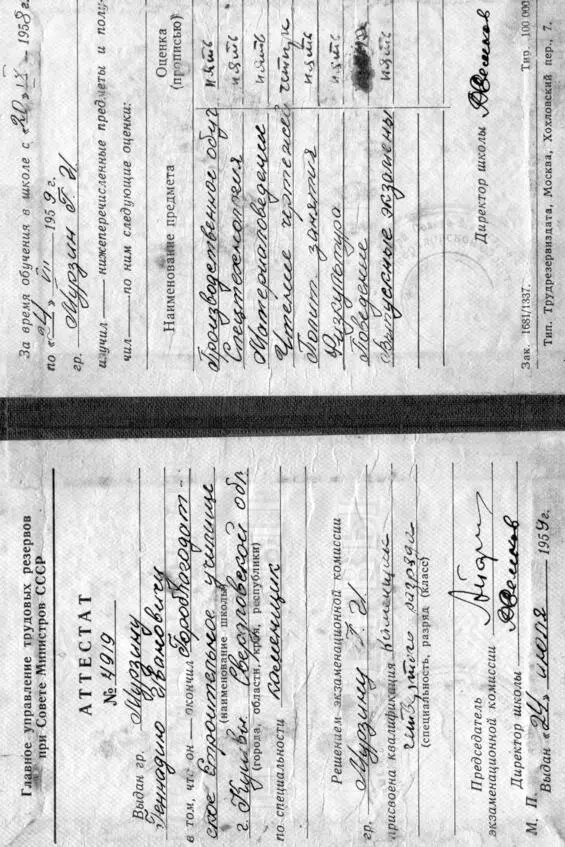 Главное управление трудовых резервов
при Совете Министров СССР
АТТЕСТАТ
№ 4919
Выдан гр. Мурзину
Геннадию Ивановичу
в том, что он — окончил Гороблагодат-
ское Строительное училище
(наименование школы)
г. Кушвы Свердловской обл
(города, области, края, республики)
по специальности каменщик
Решением экзаменационной комиссии
гр. Мурзину Г. И
присвоена квалификация каменщик
четвёртого разряда
(специальность, разряд (класс)
Председатель
экзаменационной комиссии
Директор школы
М. П. Выдан «24» июля 1959 г.
За время обучения в школе с «20» IX — 1958 г.
по «24» VII — 1959 г.
гр. Мурзин Г. И
изучил — нижеперечисленные предметы и полу-
чил — по ним следующие оценки:
Наименование предмета Оценка (прописью)
Производственное обуч пять
Спецтехнология пять
Материаловедение пять
Чтение чертежей четыре
Полит. занятия пять
Физкультура пять
Поведение
Выпускные экзамены пять
Директор школы
Зак. 1681/1337. Тир. 100 000
Тип. Трудрезервиздата, Москва, Хохловский пер., 7.